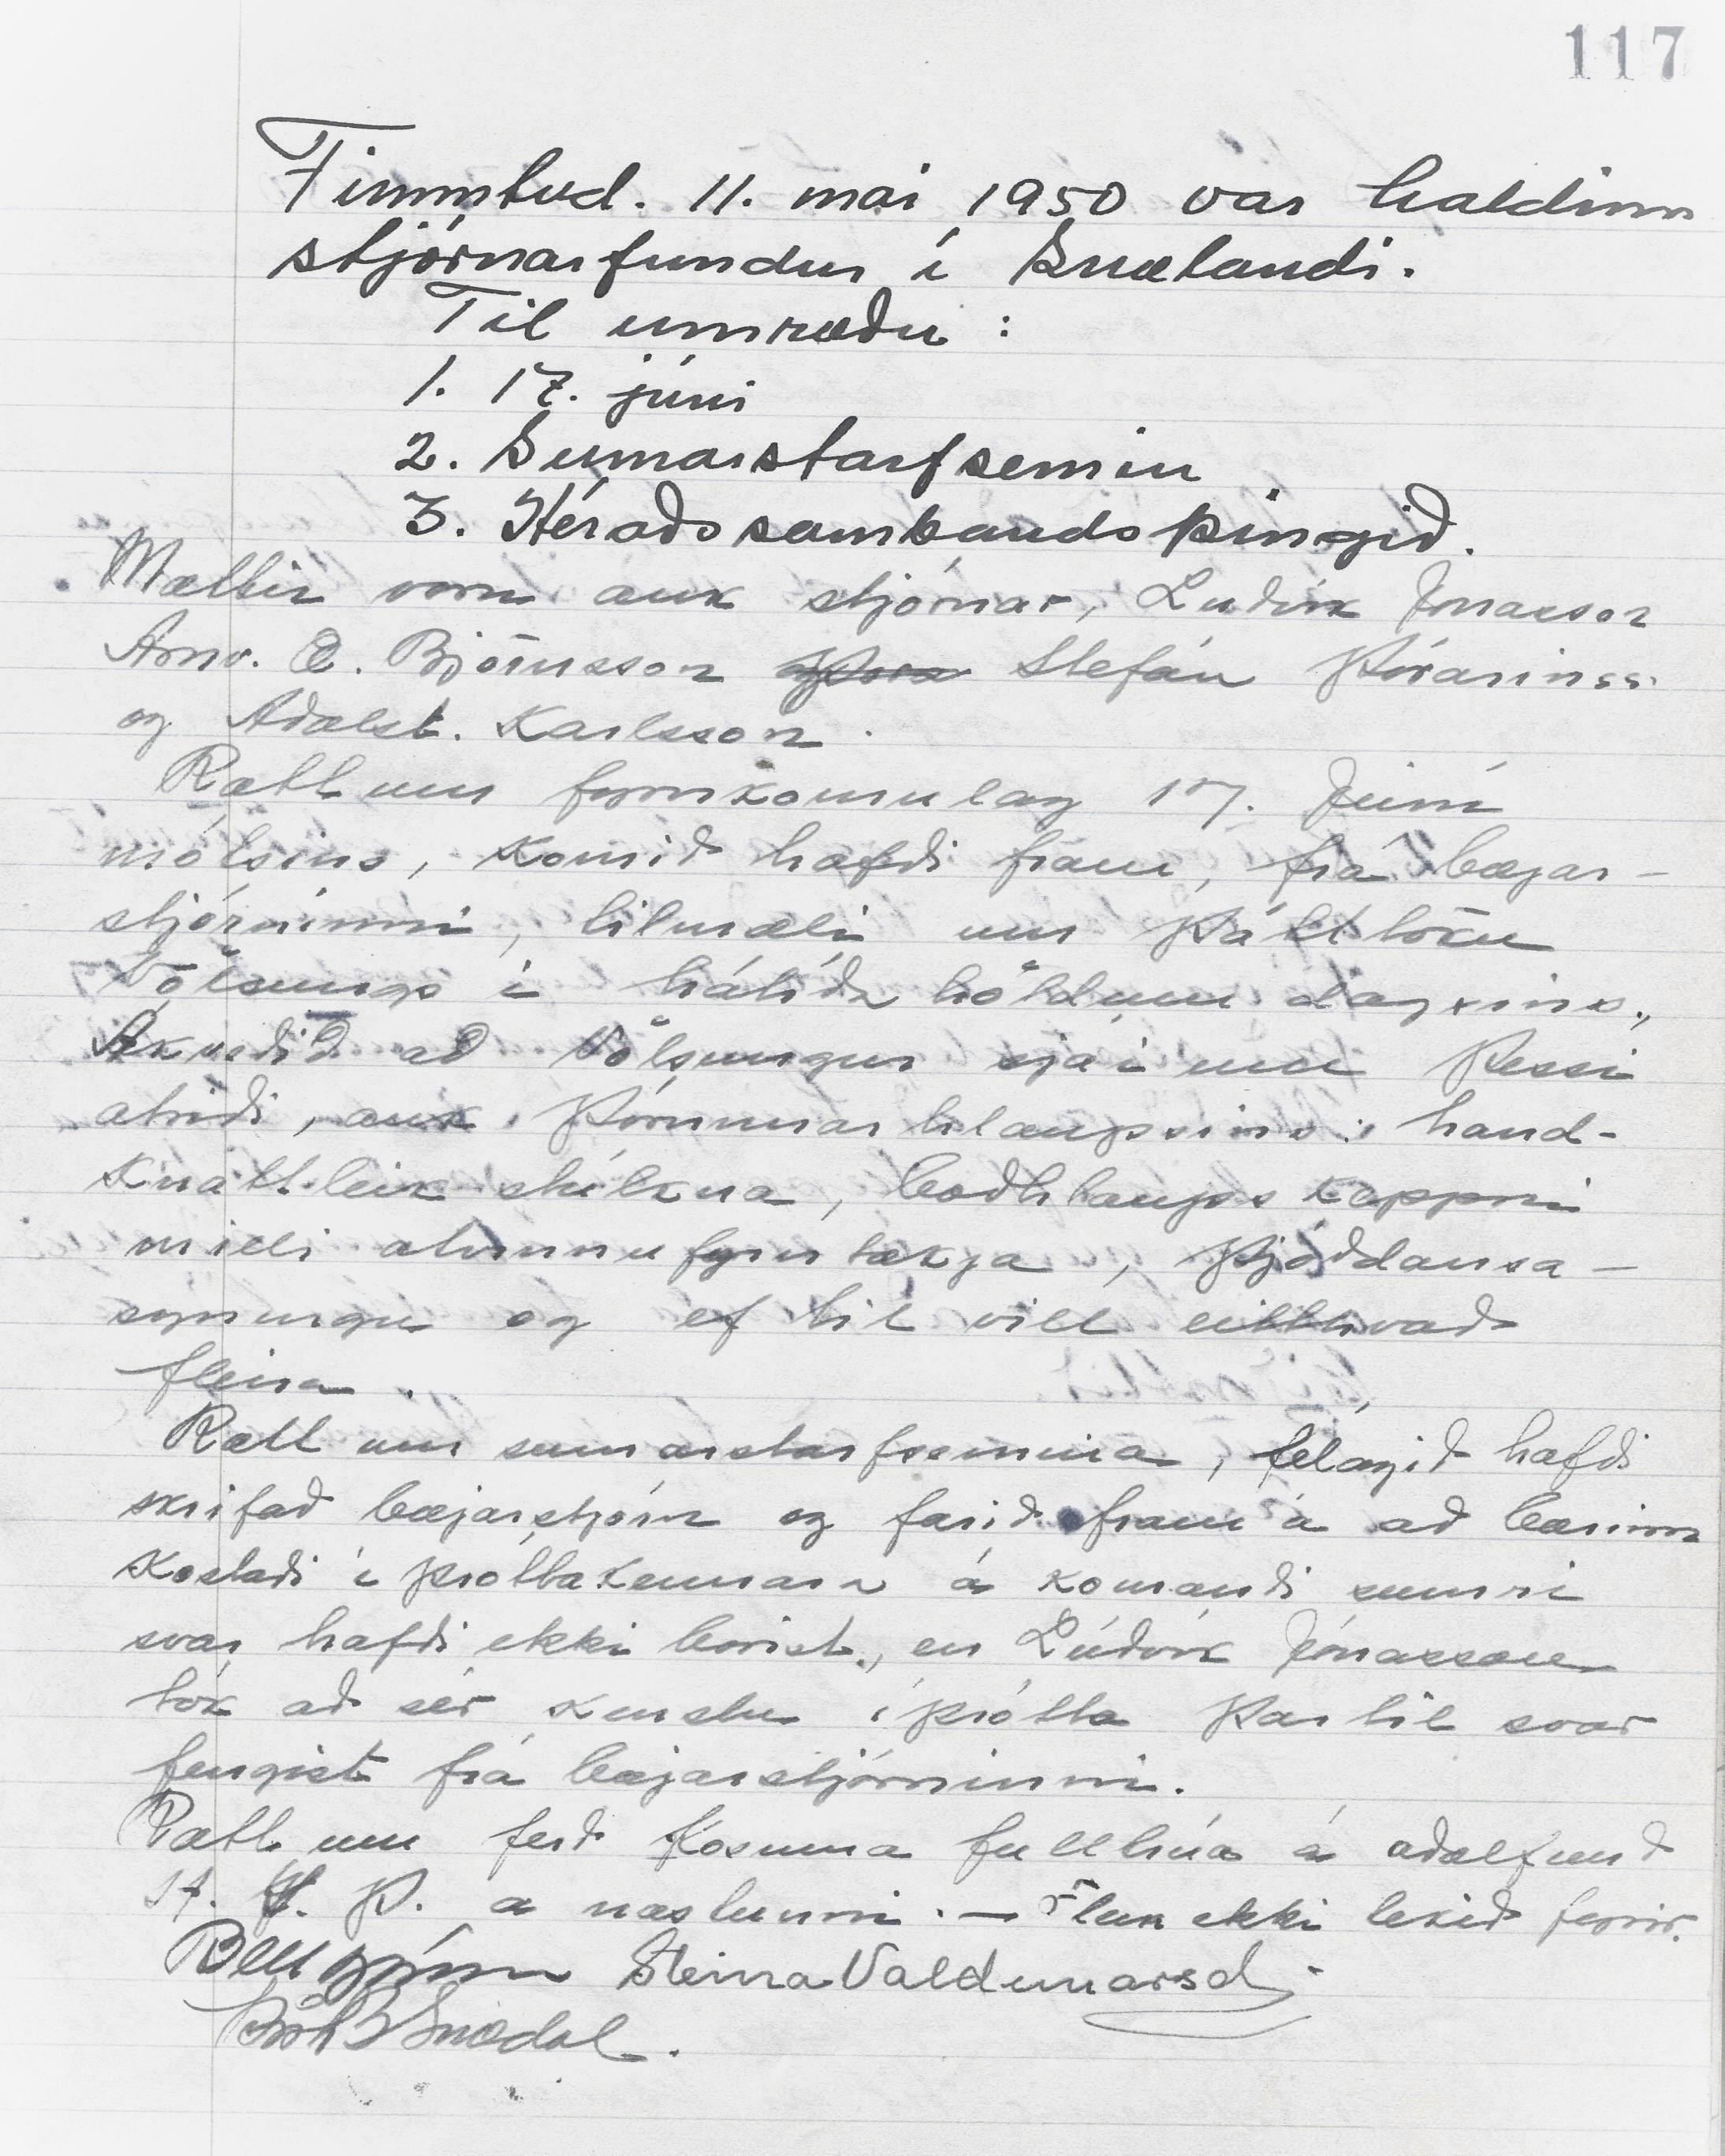 117
Fimmtud. 11. mai 1950 var haldinn
stjórnarfundur í Snælandi.
Til umræðu:
1. 17. júni
2. Sumarstarfsemin
3. Héraðssambandsþingið.
Mættir voru auk stjórnar, Ludvik Jónasson
Arnv. Björnsson Stefán Þórarinss.
og Aðalst. Karlsson.
Rætt um fyrirkomulag 17. Júní
mótsins, komið hafði fram, frá bæjar-
stjórninni, tilmæli um þátttöku
Völsungs í hátíða höldum dagsins,
Ákveðið að Völsungur sjái um þessi
atriði, auk hlaupsins: hand-
knattleik stúlkna, boðhlaups keppni
milli atvinnufyrirtækja, þjóðdansa-
syningu og ef til vill eitthvað
fleira.
Rætt um sumarstarfsemina, félagið hafði
skrifað bæjarstjórn og farið fram á að bærinn
kostaði íþróttakennara á komandi sumri
svar hafði ekki borist, en Lúdvík Jónasson
tók að sér kenslu íþrótta þar til svar
fengist frá bæjarstjórninni.
Rætt um ferð kosinna fulltrúa á aðalfund
H. Þ. á næstunni. — ekki tekið fyrir.
Steina Valdimarsd.
Snædal.